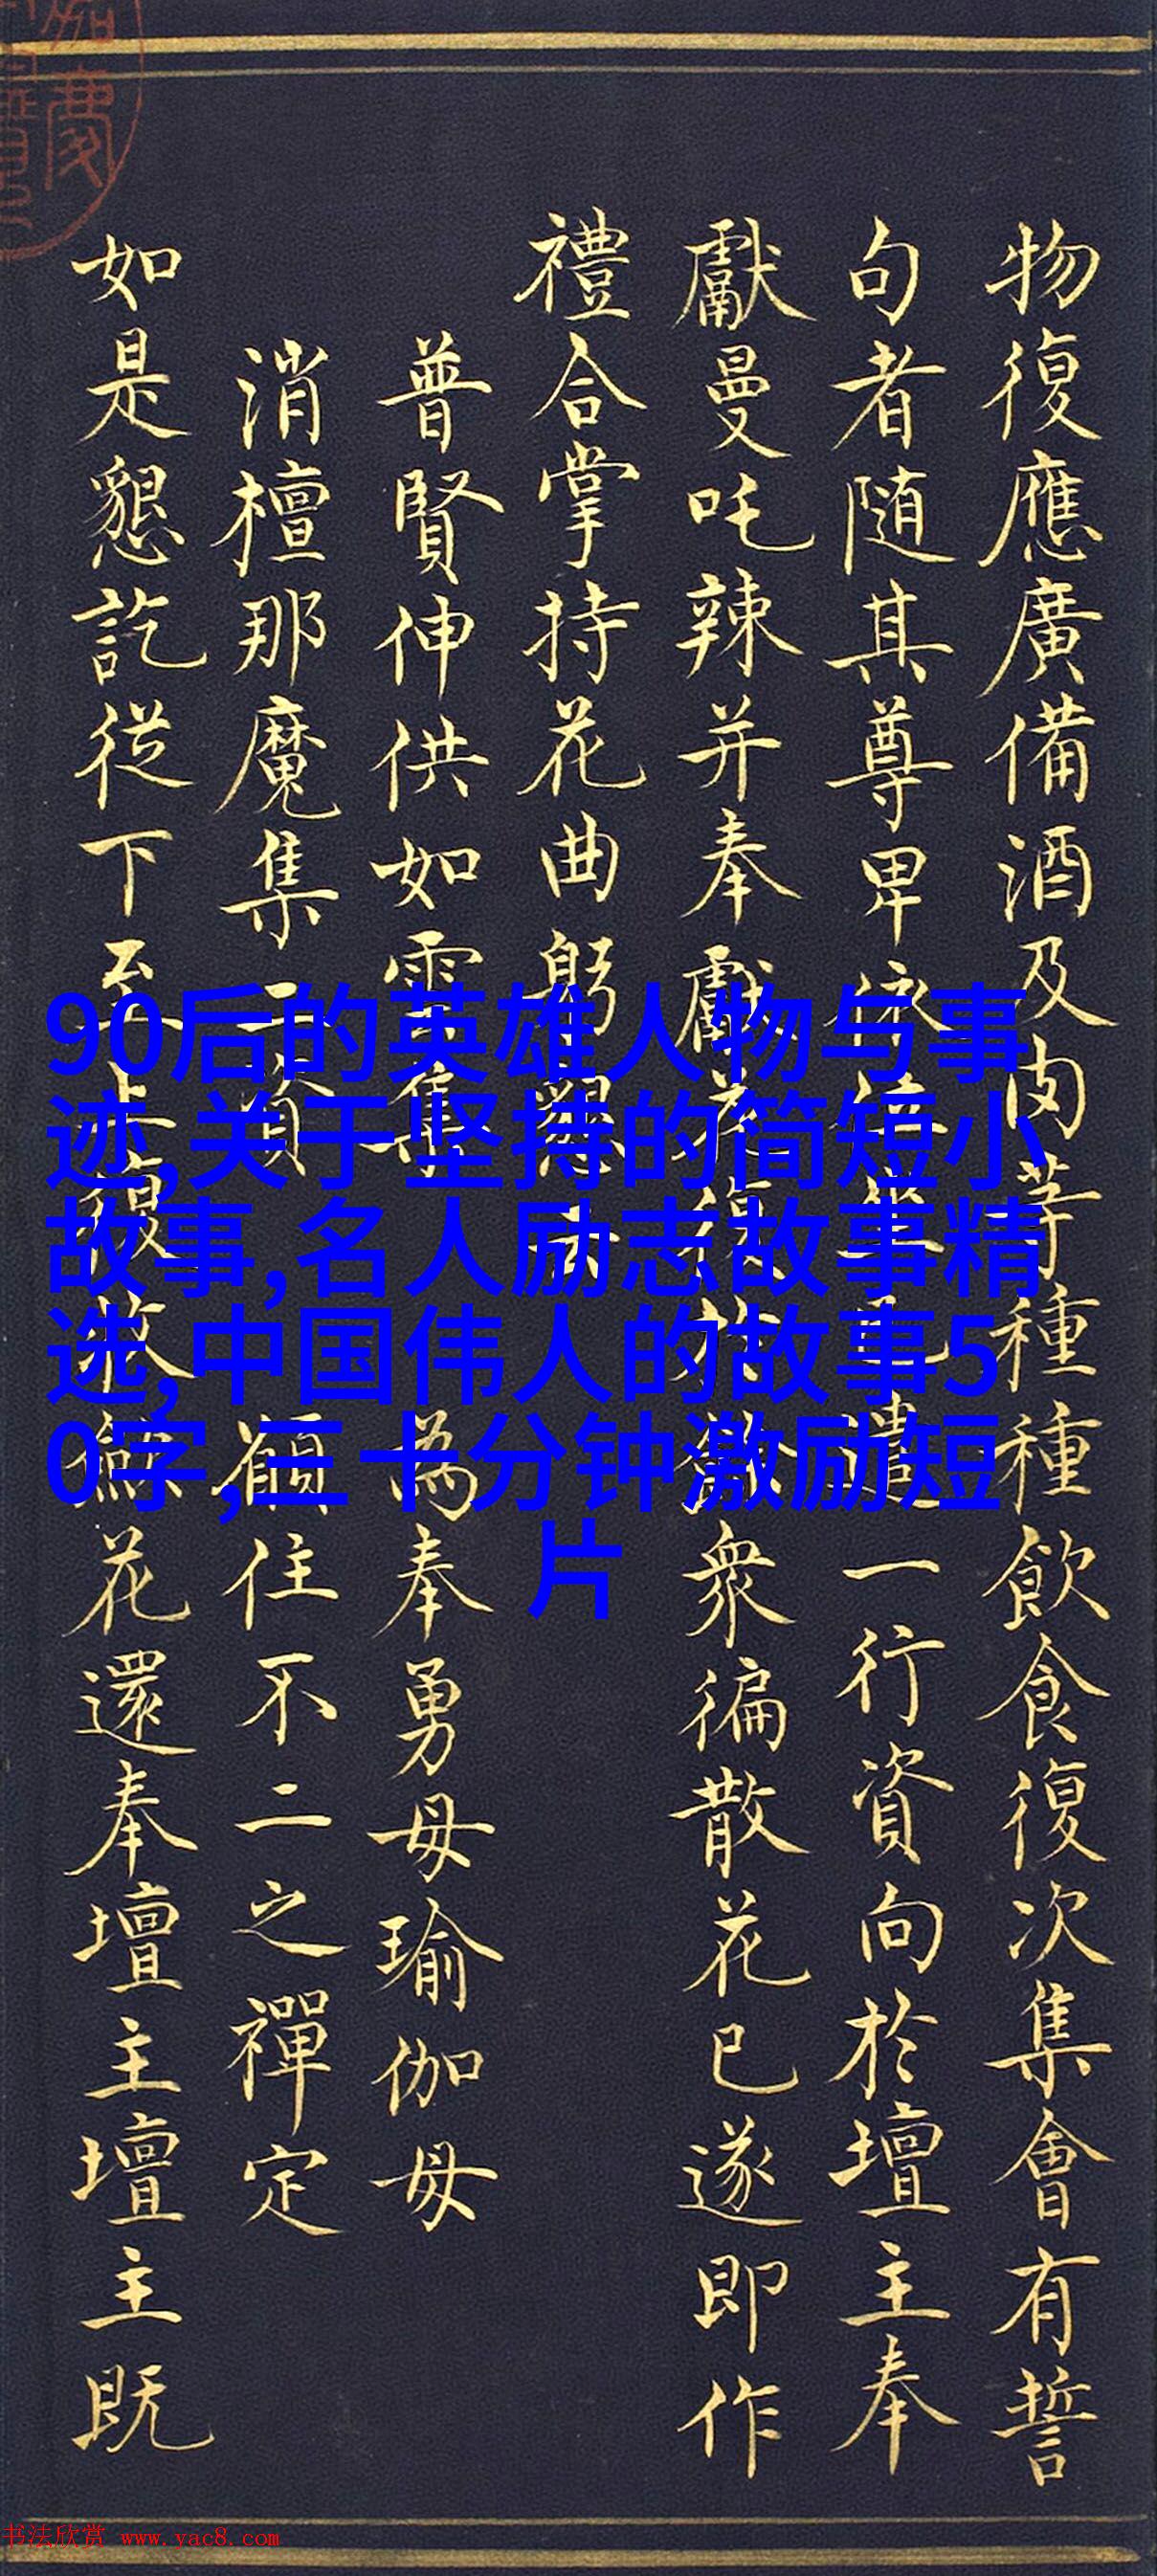 物復應廣備酒及肉等種種飲食復次集會有誓
句者随其尊卑依位一行資向於壇主奉
獻曼吒辣并奉獻衆徧散花已遂即作
禮合掌持花曲躬
普賢伸供如雲集 為奉勇母瑜伽母
消檀那魔集二資 願住不二之禪定
如是懇訖從下至上花還奉壇主壇主既
90后的英雄人物与事
迹,关于坚持的简短小
故事,名人励志故事精
选,中国伟人的故事5
0字,三十分钟激励短
片
书法欣赏 www.yac8.com